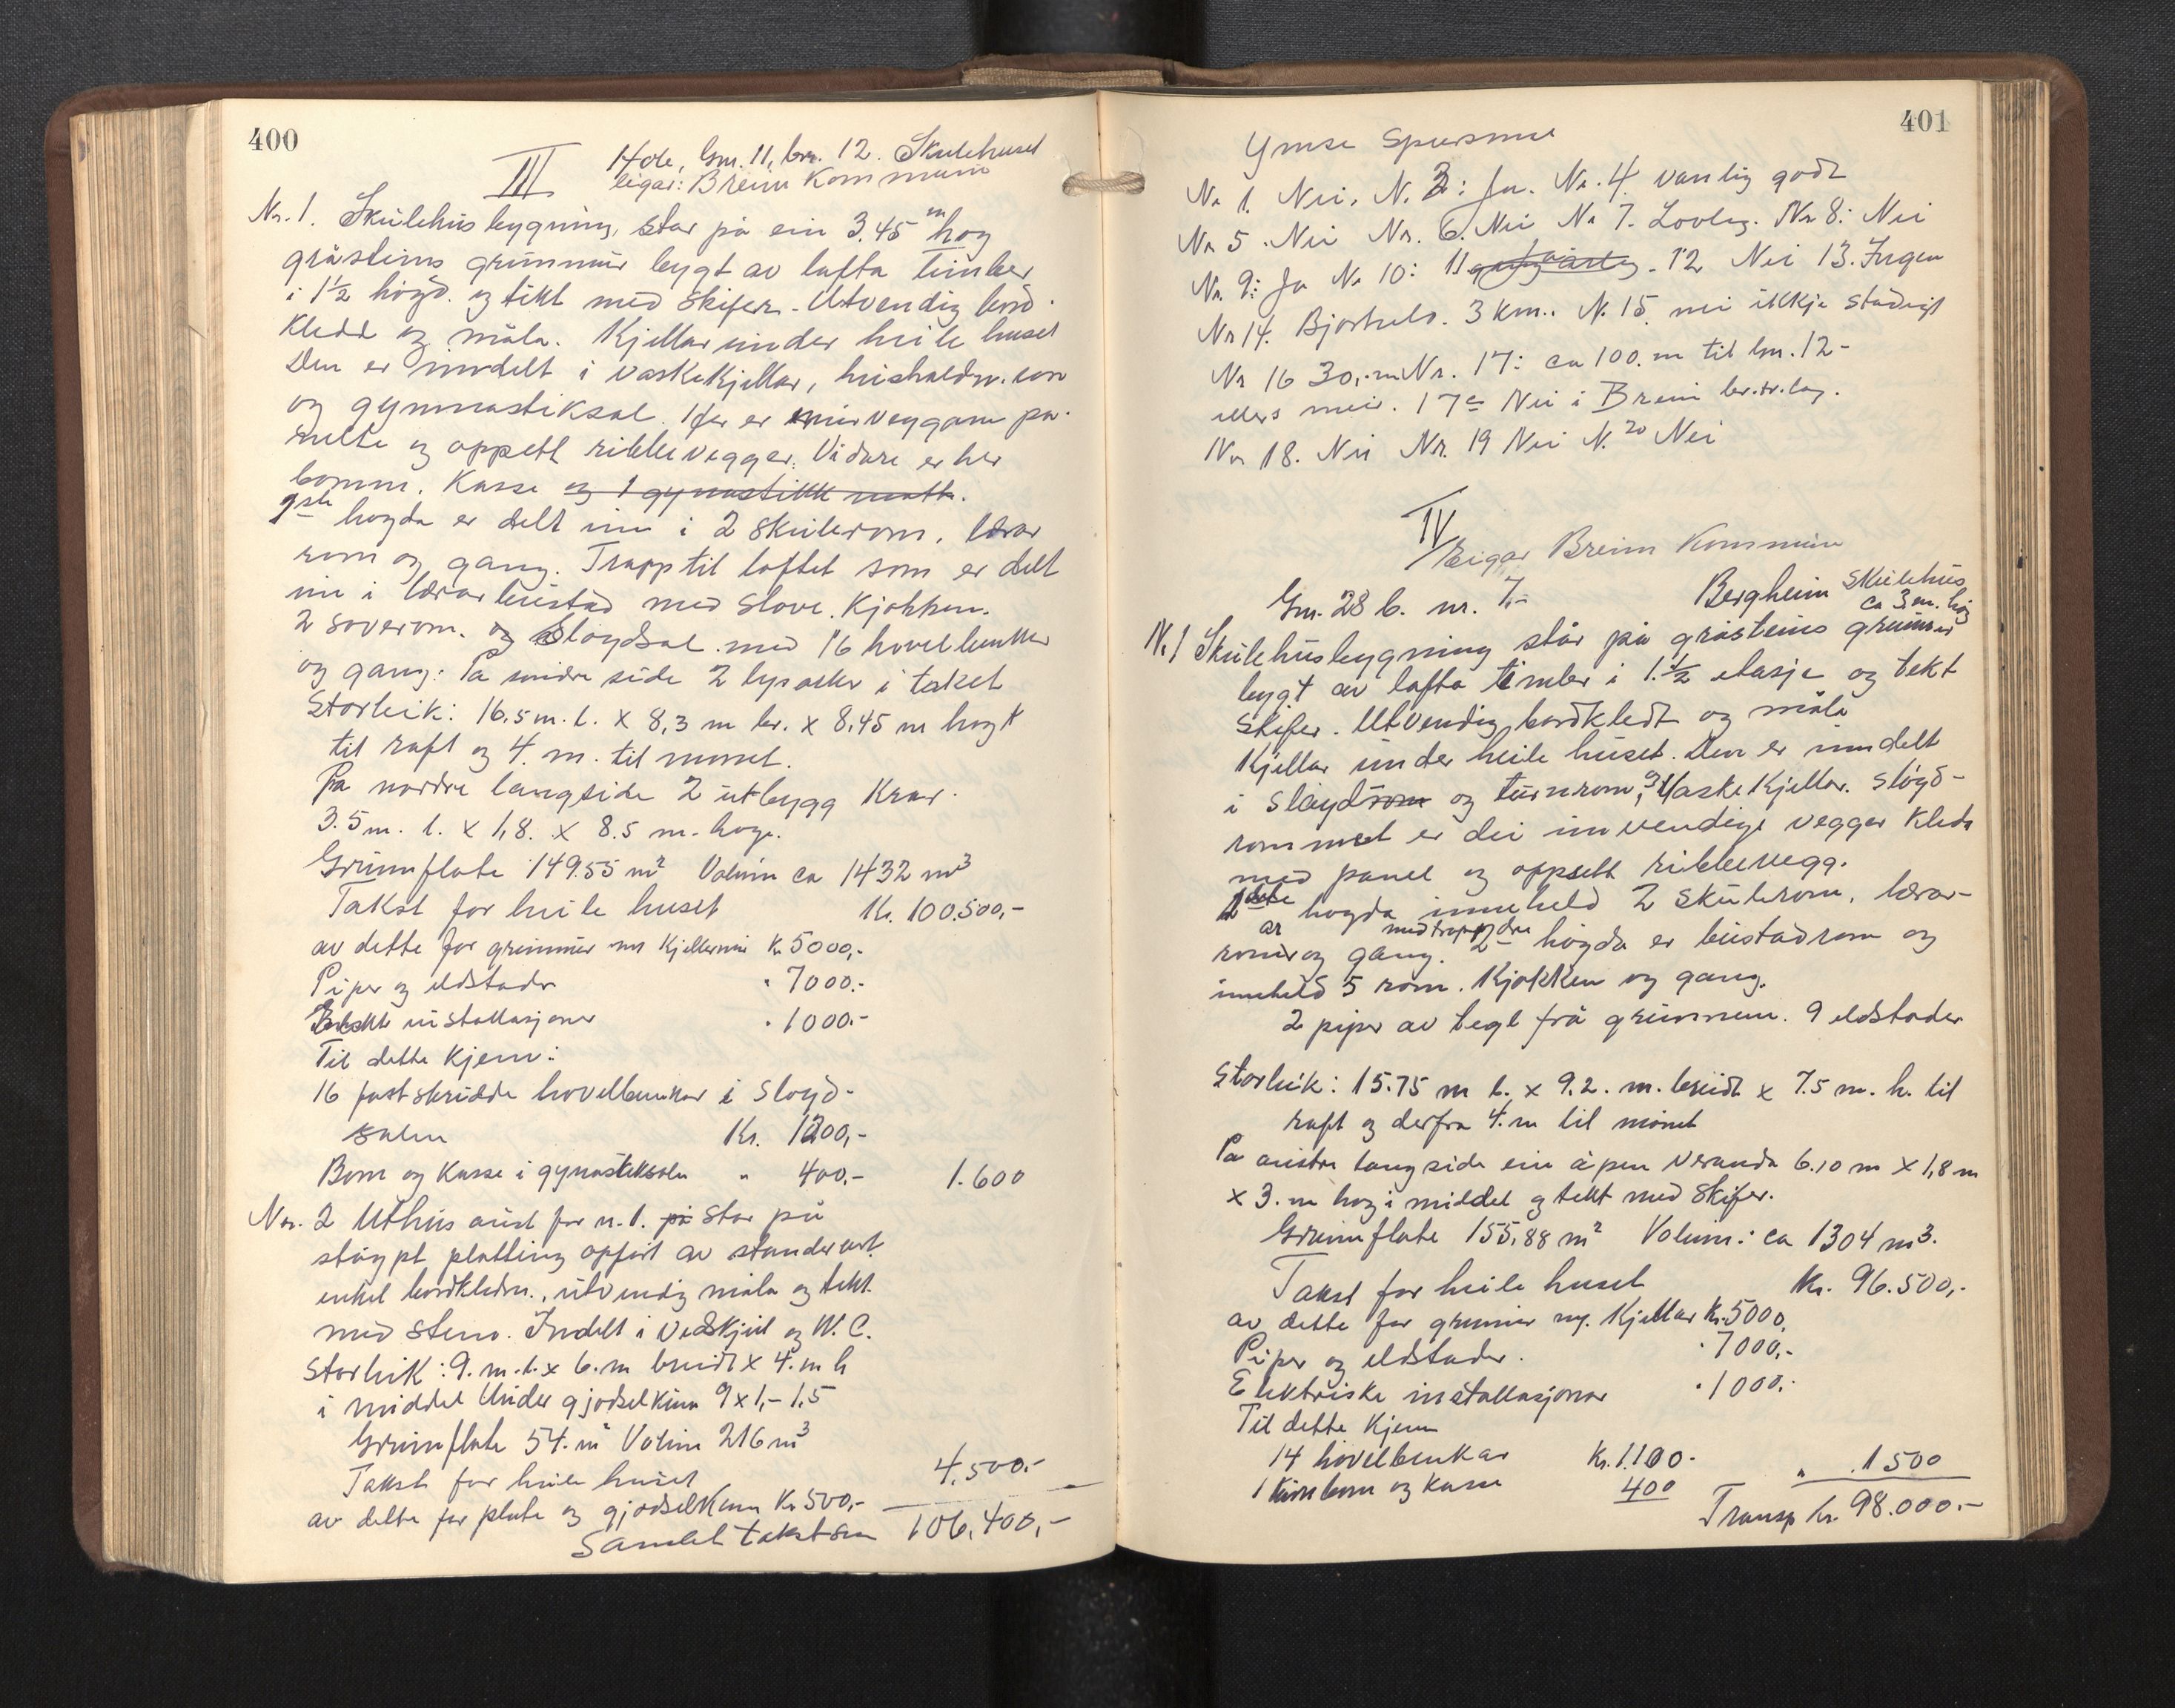 400
III
Hole, Gnr. 11, bnr. 12. Skulehuset
Eigar: Breim Kommune
Nr. 1. Skulehusbygning, står på ein 3.45 m høg
gråsteins grunnmur bygt av lafta timber
i 1½ høgd og tekt med skifer. Utvendig bord-
kledd og måla. Kjellar under heile huset
Den er inndelt i vaskekjellar, hushaldn. rom
og gymnastiksal. Her er innveggane pa-
nelte og oppsett ribbevegger. Vidare er her
bomm. Kasse og 1 gynastikk matte.
1ste høgda er delt inn i 2 skulerom, lærar
rom og gang. Trapp til loftet som er delt
inn i lærarbustad med stove. Kjøkken.
2 soverom. og sløydsal med 16 hovelbenker
og gang: På søndre side 2 lysarker i taket
Storleik: 16.5 m. l. x 8,3 m br. x 8.45 m høgt
til raft og 4. m. til mønet.
På nordre langside 2 utbygg kvar.
3.5 m. l. x 1,8. x 8.5 m. høge.
Grunnflate 149.55 m² Volum ca 1432 m³
Takst for heile huset Kr. 100.500,-
av dette for grunnmur m Kjellermur Kr 5000,-
Piper og eldstader " 7000.-
Elektr. installasjoner " 1000.-
Til dette kjem:
16 fastskrudde hovelbenkar i sløyd-
salen Kr. 1200,-
Bom og Kasse i gynastiksalen " 400,- 1.600
Nr. 2 Uthus aust for nr. 1. på står på
støypt platting oppført av standerverk
enkel bordkledn., utvendig måla og tekt
med stein. Indelt i vedskjul og W.C.
Storleik: 9. m. l. x 6. m breidt x 4. m h
i middel Under gjødselkum 9 x 1,- 1,5
Grunnflate 54. m² Volum 216 m³
Takst for heile huset 4.500.-
av dette for plate og gjødselkum Kr 500,-
Samlet takstsum 106.400,-
401
Ymse Spursmål
Nr 1. Nei. Nr. 3: Ja. Nr. 4 vanlig godt
Nr 5. Nei Nr. 6. Nei Nr 7. Lovleg. Nr 8: Nei
Nr. 9: Ja Nr 10: 11 . 12 Nei 13. Ingen
Nr 14. Bjørhelo. 3 km.. Nr. 15. nei ikkje stadigt
Nr 16 30,- m Nr. 17: ca 100. m til bnr. 12-
ellers meir. 17a Nei i Breim br.tr.lag.
Nr 18. Nei Nr. 19 Nei Nr. 20 Nei
IV
Eigar Breim Kommune
Gnr. 28 b. nr. 7,- Bergheim Skulehus
ca 3 m. høg
Nr. 1 Skulehusbygning står på gråsteins grunnmur
bygt av lafta timber i 1.½ etasje og tekt
skifer. Utvendig bordkledt og måla
Kjellar under heile huset. Den er inndelt
i sløydrom og turnrom, og Vaskekjellar. Sløyd-
rommet er dei innvendige vegger kledt
med panel og oppsett ribbevegg.
1ste høgda inneheld 2 skulerom, lærar-
romar og gang. med trapp 2dre høgda er bustadrom og
inneheld 5 rom. Kjøkken og gang.
2 piper av tegl frå grunnen. 9 eldstader
Storleik: 15.75 m l. x 9.2. m. breidt x 7.5 m. h. til
raft og derfra 4. m til mønet
På austre langside ein åpen veranda 6.10 m x 1,8 m
x 3. m høg i middel og tekt med skifer.
Grunnflate 155,88 m² Volum: ca 1304 m³.
Takst for heile huset Kr. 96.500,-
av dette for grunnmur og Kjellar Kr. 5000,
Piper og eldstader. " 7000,-
Elektriske installasjonar " 1000,-
Til dette kjem
14 hovelbenkar Kr. 1.100-
1 turnbom og kasse 400 " 1500
Transp kr. 98.000.-